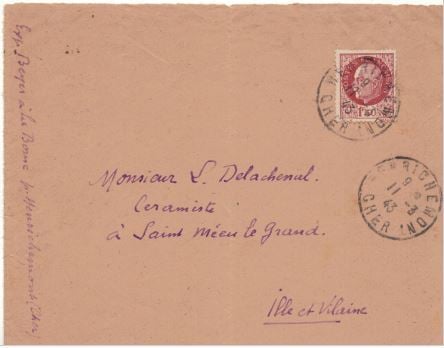 Exp Beyer à la Borne p. Henrichemont (Cher)
1F50
HENRICHEMONT
CHER
Monsieur L. Delachenal.
Ceramiste
à Saint Méen le Grand.
Ille et Vilaine
HENRICHEMONT
9 H
11 - 3
43
CHER